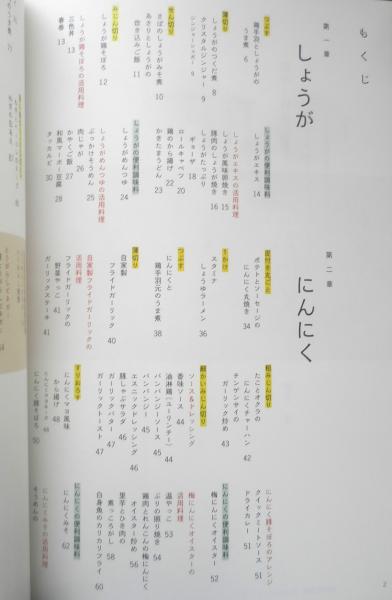 もくじ
第一章
しょうが
つぶす
鶏手羽としょうがの
うま煮 6
薄切り
しょうがのつくだ煮 8
クリスタルジンジャー 9
ジンジャーシュガー 9
せん切り
さばのしょうがみそ煮 10
あさりとしょうがの
炊き込みご飯 11
みじん切り
しょうが鶏そぼろ 12
しょうが鶏そぼろの活用料理
三色丼 13
春巻 13
しょうがの便利調味料
しょうがエキス 14
しょうがエキスの活用料理
しょうが風味卵焼き 15
豚肉のしょうが焼き 16
しょうがたっぷり
ギョーザ 18
ロールキャベツ 20
鶏のから揚げ 22
かきたまうどん 23
しょうがの便利調味料
しょうがめんつゆ 24
しょうがめんつゆの活用料理
ぶっかけそうめん 25
肉じゃが 26
かやくご飯 27
和風マーボー豆腐 28
タッカルビ 30
第二章
にんにく
皮付き丸ごと
ポテトとソーセージの
にんにく丸焼き 34
1かけ
スタミナ
しょうゆラーメン 36
つぶす
にんにくと
鶏手羽元のうま煮 38
薄切り
自家製
フライドガーリック 40
自家製フライドガーリックの
活用料理
フライドガーリックの
野菜やっこ 41
ガーリックステーキ 41
粗みじん切り
たことオクラの
にんにくチャーハン 42
チンゲンサイの
ガーリック炒め 43
細かいみじん切り
ソース&ドレッシング
香味ソース 44
油淋鶏(ユーリンチー) 44
バンバンジーソース 45
バンバンジー 45
エスニックドレッシング 46
豚しゃぶサラダ 46
ガーリックバター 47
ガーリックトースト 47
すりおろす
にんにくマヨ風味
から揚げ 48
にんにく鶏そぼろ 50
にんにく鶏そぼろのアレンジ
クイックミートソース 51
ドライカレー 51
にんにくの便利調味料
梅にんにくオイスター 52
梅にんにくオイスターの
活用料理
温やっこ 53
ぶりの照り焼き 54
鶏肉とれんこんの梅にんにく
オイスター炒め 56
里芋とひき肉の
煮っころがし 58
白身魚のカリカリフライ 60
にんにくの便利調味料
にんにくみそ 62
にんにくみその活用料理
そうめんの
2